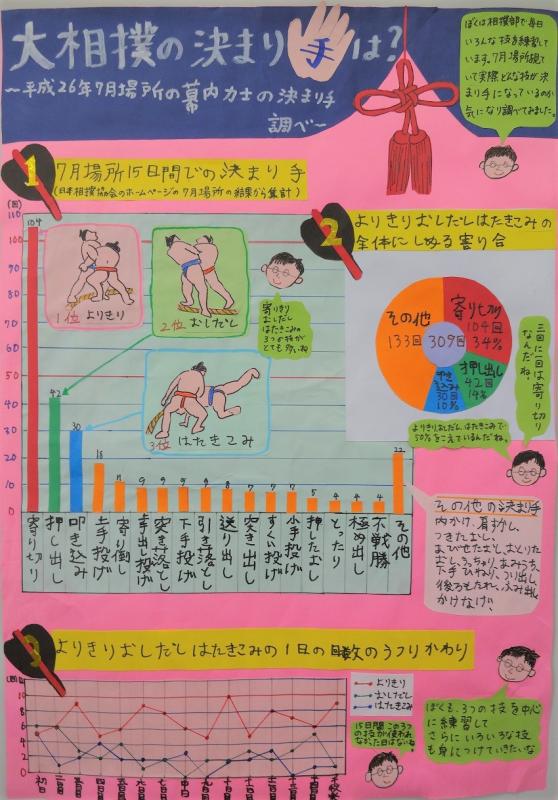 大相撲の決まり手は?
〜平成26年7月場所の幕内力士の決まり手
調べ〜
ぼくは相撲部で毎日
いろんな技を練習して
います。7月場所観て
いて実際どんな技が決
まり手になっているのか
気になり調べてみました。
1
7月場所15日間での決まり手
(日本相撲協会のホームページの7月場所の結果から集計)
(回)
110
100
90
80
70
60
50
40
30
20
10
0
104
42
30
18
11
9
9
9
9
8
7
7
7
5
4
4
4
22
1位 よりきり
2位 おしだし
3位 はたきこみ
寄りきり
おしだし
はたきこみの
3つの技が
とても多いね
寄り切り
押し出し
叩き込み
上手投げ
寄り倒し
突き落とし
下手投げ
引き落とし
送り出し
突き出し
すくい投げ
小手投げ
押したおし
とったり
極め出し
不戦勝
その他
2
よりきりおしだしはたきこみの
全体にしめる寄り合
その他
133回
309回
寄り切り
104回
34%
押し出し
42回
14%
叩き込み
30回
10%
三回に一回は寄り切り
なんだね!
よりきりおしだし、はたきこみで
50%をこえているんだね。
その他の決まり手
つきたおし、
下手ひねり、つり出し、
後ろもたれ、ふみ出し
かけなげ、
3
よりきりおしだしはたきこみの1日の回数のうつりかわり
(回)
12
10
8
6
4
2
0
初日
二日目
三日目
四日目
五日目
六日目
七日目
中日
九日目
十日目
十一日目
十二日目
十三日目
十四日目
千秋楽
よりきり
おしだし
はたきこみ
15日間この3つ
の技が使われ
なかった日はないね。
ぼくも、3つの技を中心
に練習して
さらにいろいろな技
も身につけていきたいな